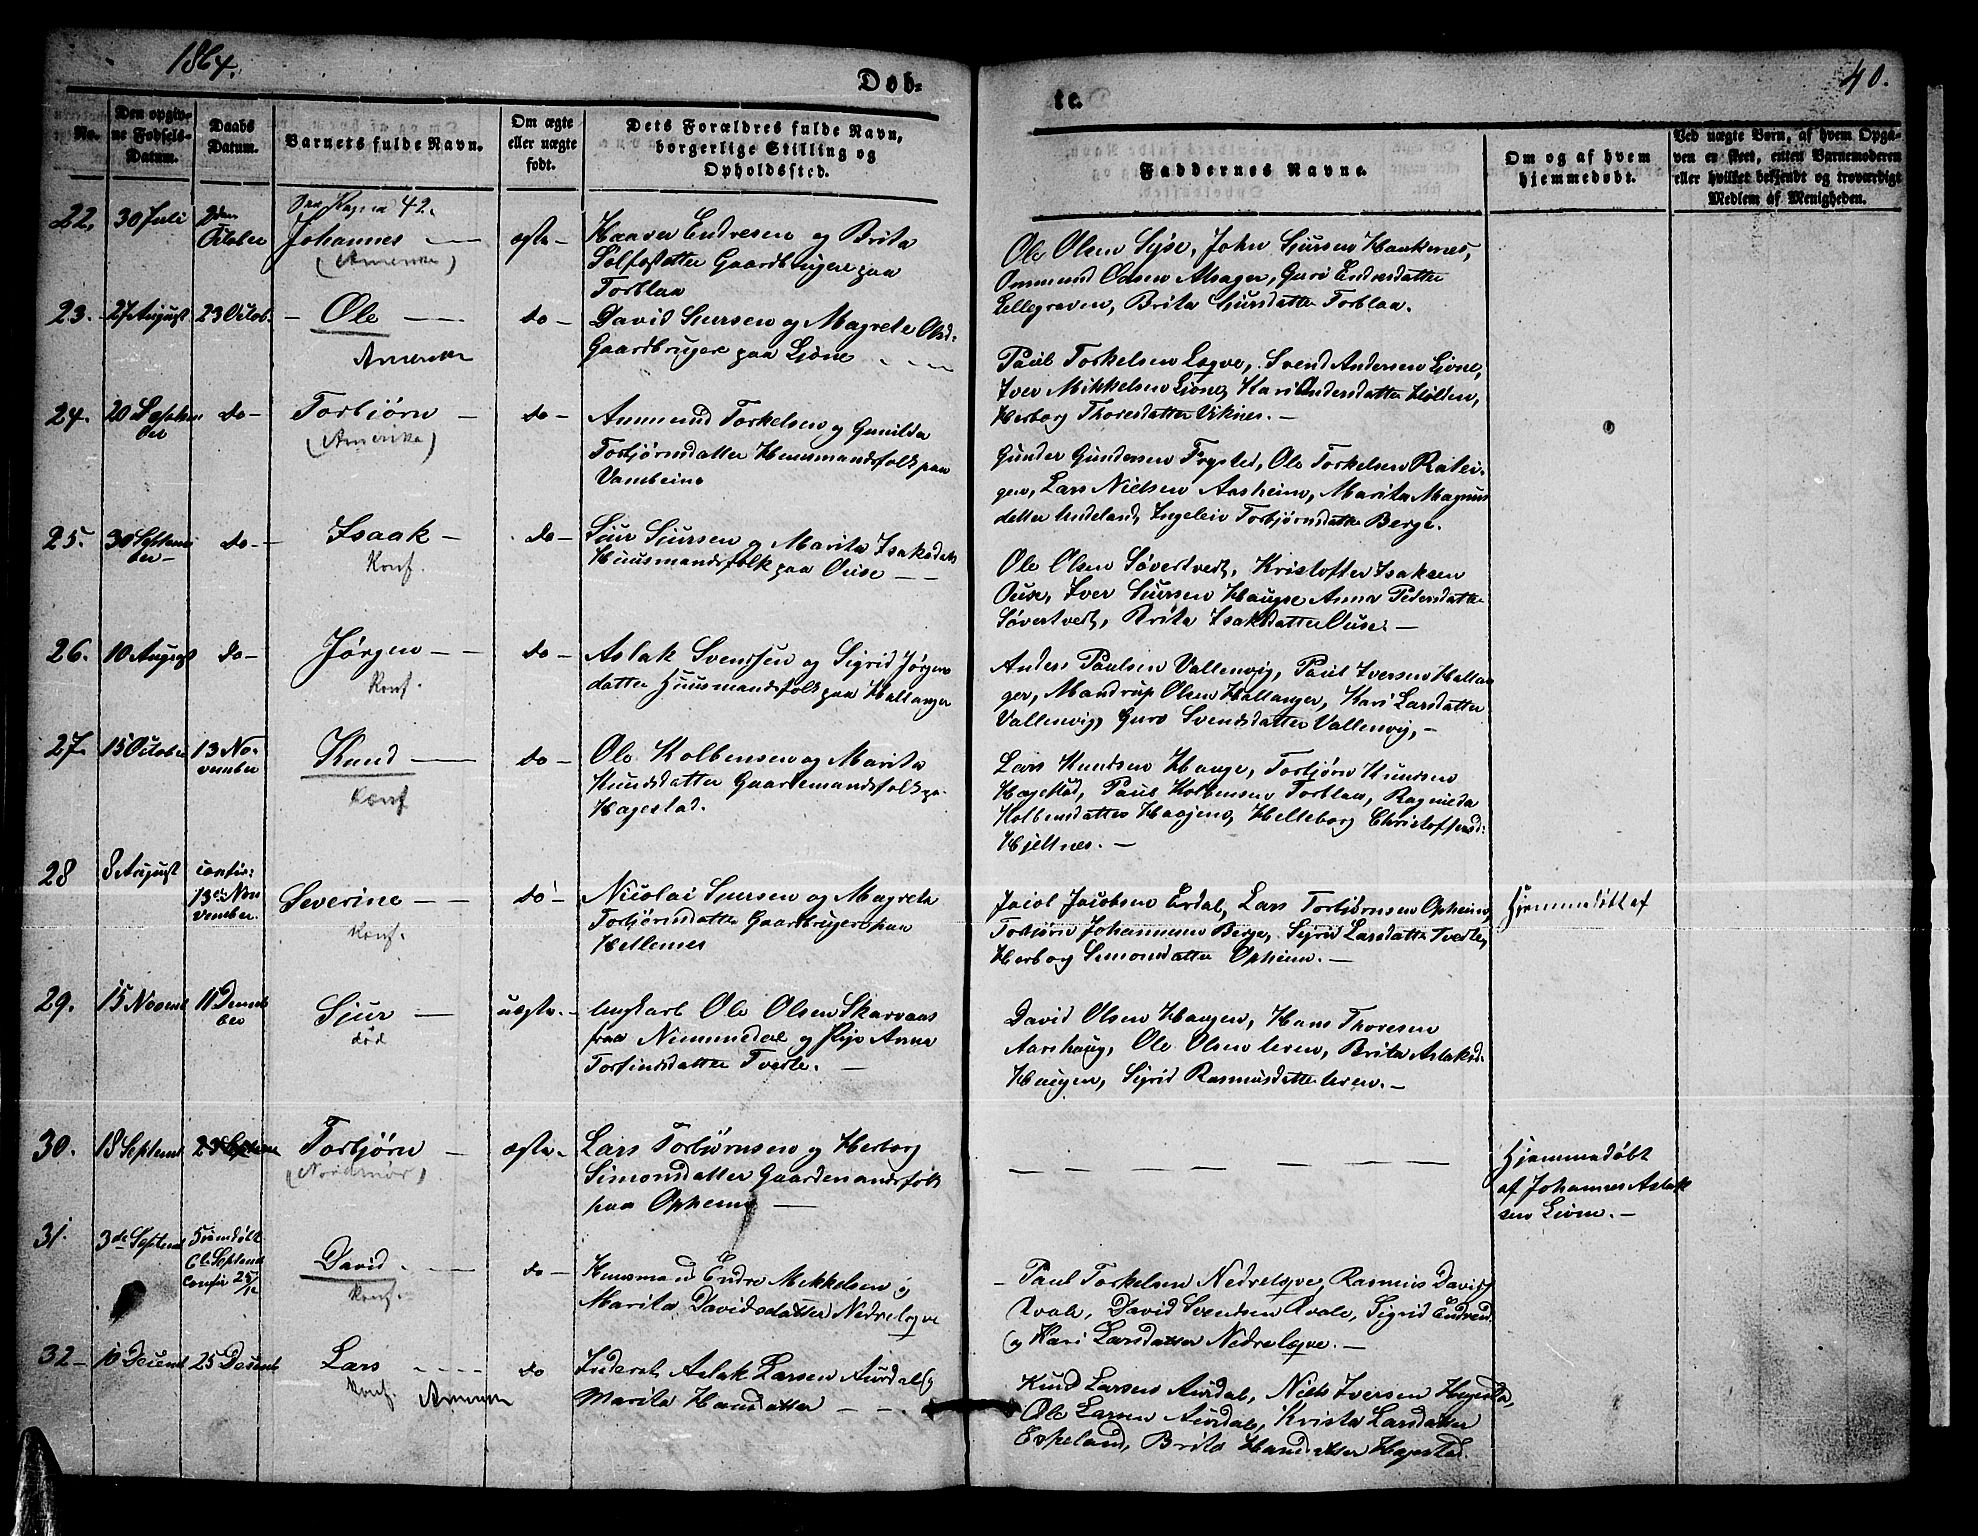 1864.
Døb-
te.
40.
No.
Den opgiv-
ne Fødsels-
Datum.
Daabs
Datum.
Barnets fulde Navn.
Om ægte
eller uægte
født.
Dets Forældres fulde Navn,
borgerlige Stilling og
Opholdssted.
Faddernes Navne.
Om og af hvem
hjemmedøbt.
Ved uægte Børn, af hvem Opga-
ven er skeet, enten Barnemoderen
eller hvilket bekjendt og troværdigt
Medlem af Menigheden.
22. 30 Juli 2den
October
42.
Johannes
(Amerika)
ægte
Haaver Endresen og Brita
Gaardbrugere paa
Torblaa
Ole Olsen Syse, John Sjursen Haaksnes,
Ommund Olsen Alsager, Guro Endresdatter
Lillegraven, Brita Sjursdatter Torblaa.
23. 27 August 23 Octob. Ole
Amerika
do
David Sjursen og Magrete Olsd:
Gaardbrugere paa Ljone
Paul Torkelsen Løqve, Svend Andersen Ljone,
Iver Mikkelsen Ljone, Kari Andersdatter Holden,
Herborg Thoresdatter Viknes.
24. 20 Septem
ber
do Torbjørn
(Amerika)
do
Ammund Torkelsen og Gunilda
Torbjørnsdatter Huusmandsfolk paa
Vambeim
Gunder Gundersen Frysted, Ole Torkelsen
gen, Lars Nielsen Aasheim, Marita Magnus
datter Indeland, Ingeleiv Torbjørnsdatter Berge.
25. 30 Septem
ber
do Isaak
Konf.
do
Sjur Sjursen og Marita Isaksdatt
Huusmandsfolk paa Ouse
Ole Olsen Søvertvedt, Kristoffer Isaksen
Ouse, Iver Sjursen Hauge Anna Pedersdatter
Søvertvedt, Brita Isaksdatter Ouse.
26. 10 August do Jørgen
Konf.
do
Aslak Svendsen og Sigrid Jørgens
datter Huusmandsfolk paa Hallanger
Anders Paulsen Vallenvig, Paul Iversen Hallan
ger, Mandrup Olsen Hallanger, Kari Larsdatter
Vallenvig, Guro Svendsdatter Vallenvig,
27. 15 October 13 No-
vember
Knud
Konf
do
Ole Kolbensen og Marita
Knudsdatter Gaardmandsfolk pa
Hagestad.
Lars Knudsen Hauge, Torbjørn Knudsen
Hagestad, Paul Kolbensen Torblaa, Ragnilda
Kolbensdatter Haajem, Helleborg Christoffersd:
Hjeltnes.
28 8 August confir:
13de No
vember.
Severine
Konf.
do
Nicolai Sjursen og Magreta
Torbjørnsdatter Gaardbrugere paa
Hellenes
Jacob Jacobsen Erdal, Lars Torbjørnsen Opheim,
Torbjørn Johannesen Berge, Sigrid Larsdatter Tvedte,
Herborg Simonsdatter Opheim.
Hjemmedøbt af
29. 15 Novemb 11 Decemb
ber
Sjur
død
uægte
Ungkarl Ole Olsen Skarvaas
fraa Nummedal og Pige Anna
Torfinsdatter Tvedte.
David Olsen Haugen, Hans Thoresen
Aarshaug, Ole Olsen Leren, Brita Aslaksd.
Haugen, Sigrid Rasmusdatter Leren.
30. 18 Septemb Torbjørn
(Nordmør)
ægte
Lars Torbjørnsen og Herborg
Simonsdatter Gaardemandsfolk
paa Opheim
Hjemmedøbt
af Johannes Aslak
sen Ljone.
31. 3de Septemb
confir 25/12
David
Konf.
do
Huusmand Endre Mikkelsen og
Marita Davidsdatter Nedreløqve
Paul Torkelsen Nedreløqve, Rasmus Davids
Qvale, David Svendsen Qvale, Sigrid Endresd
og Kari Larsdatter Nedreløqve.
32 10 Decemb 25 Decemb Lars
Konf. Amerika
do
Inderst Aslak Larsen Aurdal og
Marita Hansdatter
Knud Larsen Aurdal, Niels Iversen Hagesta,
Ole Larsen Aurdal, Krista Larsdatter
Espeland, Brita Hansdatter Hagestad.